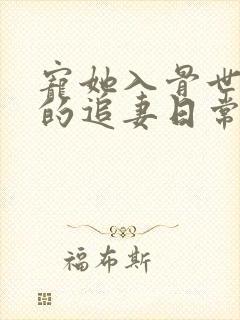 宠她入骨世
的追妻日常
福布斯